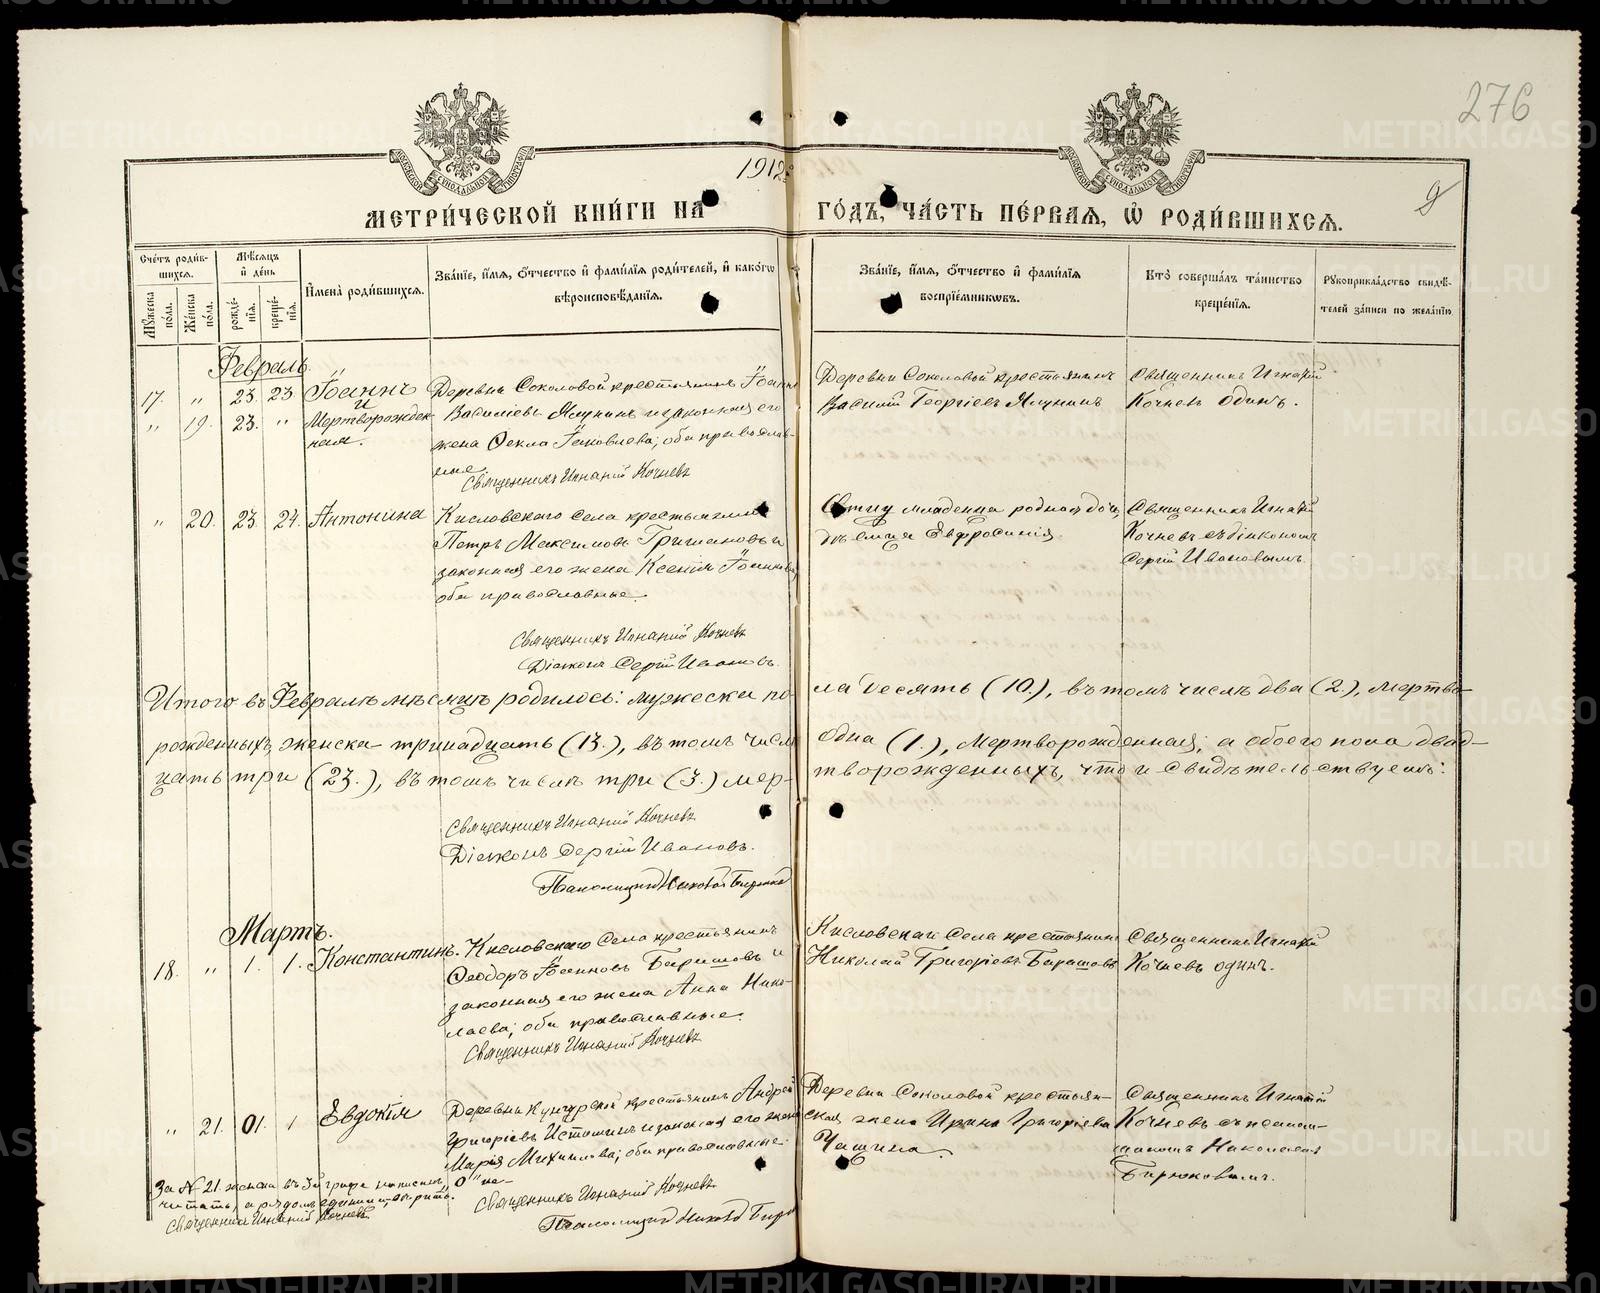 276
1912
9
МЕТРИ́ЧЕСКОЙ КНИ́ГИ НА ГО́ДЪ, ЧА́СТЬ ПЕ́РВАЯ, Ѡ РОДИ́ВШИХСЯ.
Сче́тъ роди́вшихся.
Му́жеска по́ла.
Же́нска по́ла.
Мѣ́сяцъ и де́нь
рожде́нія.
креще́нія.
И҆мена̀ роди́вшихся.
Зва́нїе, и҆́мя, ѻ҆́тчество и҆ фами́лїя роди́телей, и҆ како́гѡ вѣроисповѣ́данїя.
Зва́нїе, и҆́мя, ѻ҆́тчество и҆ фами́лїя воспрїе́мникѡвъ.
Кто̀ соверша́лъ та́инство креще́нїя.
Рꙋкоприкла́дство свидѣ́телей за́писи по жела́нїю.
Февраль.
17. " 23. 23. Іоаннъ
и
" 19. 23. " Мертворожденная.
Деревни Соколовой крестьянинъ Іоаннъ
Васильевъ Ялунинъ и законная его
жена Ѳекла Іаковлева; оба православные.
Священникъ Игнатій Кочневъ
Деревни Соколовой крестьянинъ
Василій Георгіевъ Ялунинъ
Священникъ Игнатій
Кочневъ одинъ.
" 20. 23. 24. Антонина
Кисловскаго села крестьянинъ
Петръ Максимовъ и
законная его жена Ксенія Іоаннова
оба православные.
Священникъ Игнатій Кочневъ
Діаконъ Сергій Ивановъ.
младенца родная дочь
дѣвица Евфросинія.
Священникъ Игнатій
Кочневъ съ діакономъ
Сергіемъ Ивановымъ.
Итого въ Февралѣ мѣсяцѣ родилось: мужеска пола десять (10.), въ томъ числѣ два (2.), мертво-
рожденныхъ, женска - тринадцать (13.), въ томъ числѣ одна (1.), мертворожденная, а обоего пола двад-
цать три (23.), въ томъ числѣ три (3.) мертворожденныхъ, что и свидѣтельствуемъ:
Священникъ Игнатій Кочневъ
Діаконъ Сергій Ивановъ.
Псаломщикъ Николай Бирюков
Мартъ.
18. " 1. 1. Константинъ.
Кисловскаго Села крестьянинъ
Ѳеодоръ Іоанновъ Барашовъ и
законная его жена Анна Нико-
лаева; оба православные.
Священникъ Игнатій Кочневъ
Кисловскаго Села крестьянинъ
Николай Григоріевъ Барашовъ
Священникъ Игнатій
Кочневъ одинъ.
" 21. 01. 1 Евдокія
Деревни Кунгурской крестьянинъ Андрей
Григоріевъ Истоминъ и законная его жена
Марія Михаилова; оба православные.
Священникъ Игнатій Кочневъ
Псаломщикъ Николай Бирю
Деревни Соколовой крестьян-
ская жена Ирина Григоріева
Чащина.
Священникъ Игнатій
Кочневъ съ псалом-
щикомъ Николаемъ
Бирюковымъ.
За № 21. женска въ 3й графѣ написанъ "О" не
читать, а рядомъ единицу
Священникъ Игнатій Кочневъ